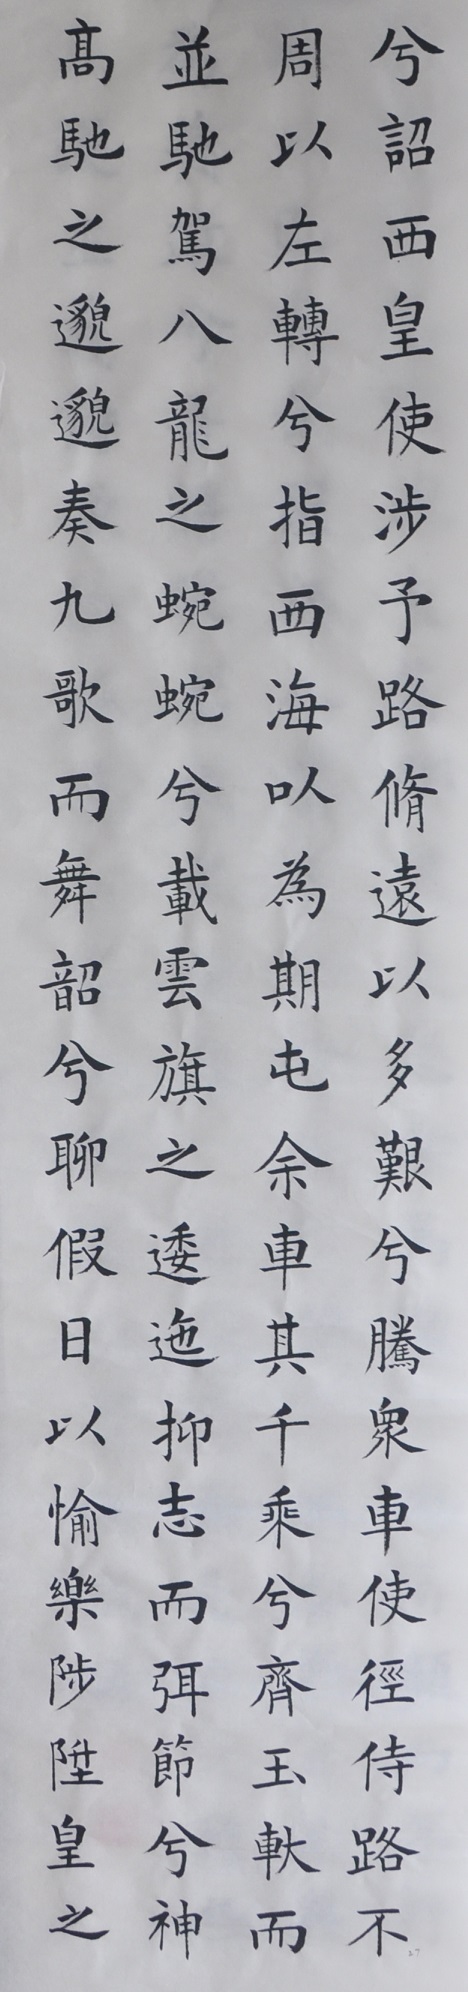 兮詔西皇使涉予路脩遠以多艱兮騰衆車使徑侍路不
周以左轉兮指西海以為期屯余車其千乘兮齊玉軑而
並馳駕八龍之蜿蜿兮載雲旗之逶迤抑志而弭節兮神
高馳之邈邈奏九歌而舞韶兮聊假日以愉樂陟陞皇之